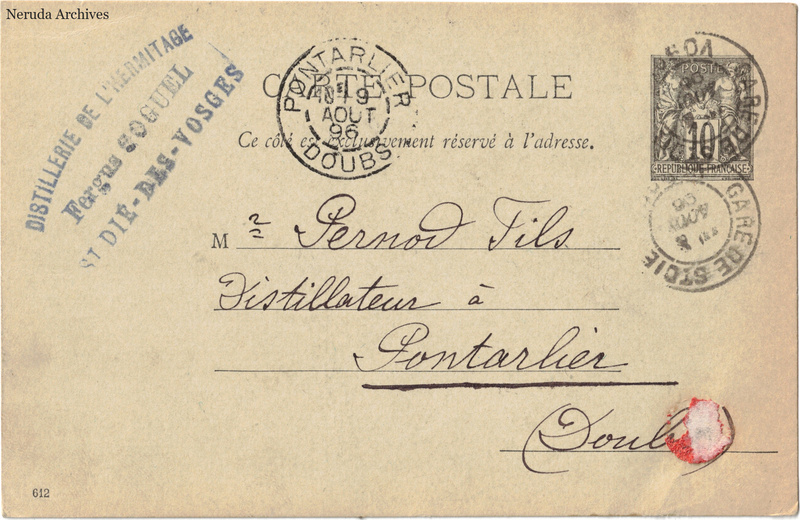 Neruda Archives
DISTILLERIE DE L'HERMITAGE
Fergus SOGUEL
ST DIÉ-DES-VOSGES
PONTARLIER
19
AOUT
96
DOUBS
CARTE POSTALE
Ce côté est exclusivement réservé à l'adresse.
POSTES
10
REPUBLIQUE FRANÇAISE
GARE DE ST DIE
8
AOUT
96
GARE DE ST DIE
M r Pernod Fils
Distillateur à
Pontarlier
(Doubs
612